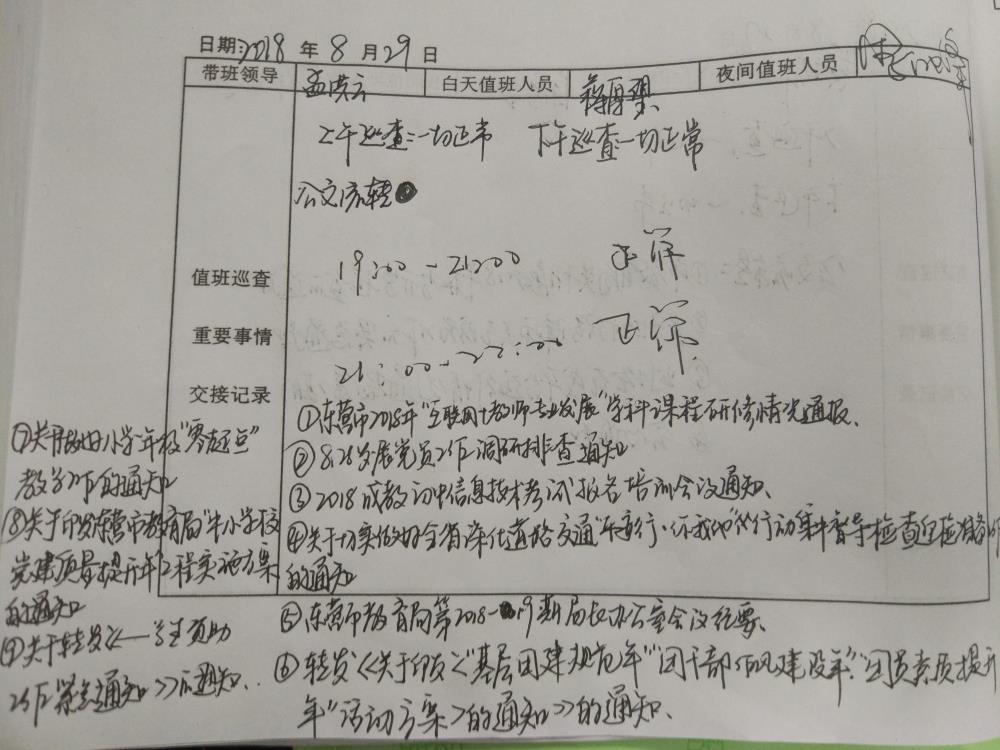 日期:2018 年 8 月 29 日
带班领导 孟洪云 白天值班人员 夜间值班人员
上午巡查:一切正常 下午巡查:一切正常
公文流转
19:00-21:00 正常
值班巡查
重要事情
21:00-22:00 正常
交接记录
①东营市2018年“互联网+教师专业发展”学科课程研修情况通报.
②8.28发展党员工作调研排查通知
③2018成教初中信息技术考试报名培训会议通知、
④关于切实做好全省深化道路交通“平安行·你我他”行动集中督导检查迎检准备的
的通知
⑤东营市教育局第2018-19期局长办公室会议纪要、
⑥转发《关于印发《“基层团建规范年”“团干部作风建设年”“团员素质提升
年”活动方案>的通知》的通知、
⑦关于做好小学一年级“零起点”
教学工作的通知
⑧关于印发东营市教育局“中小学校
党建质量提升年”工程实施方案
的通知
⑨关于转发《一学生资助
工作紧急通知》的通知、